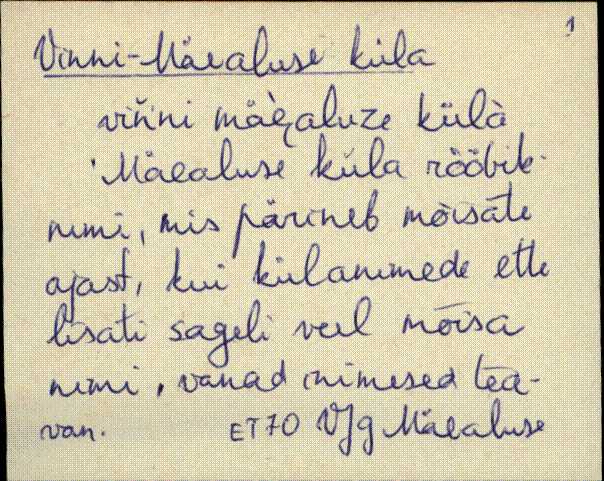 1
Vinni-Mäealuse küla
vińni mäèaluze külà
'Mäealuse küla rööbik-
nimi, mis pärineb mõisate
ajast, kui külanimede ette
lisati sageli veel mõisa
nimi, vanad inimesed tea-
van. ET70 VJg Mäealuse